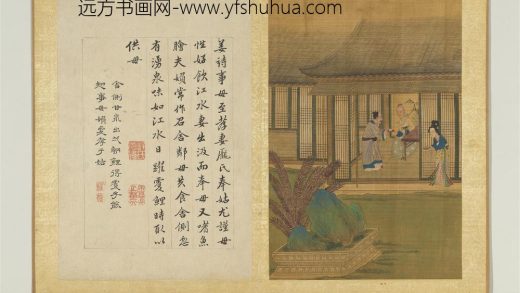 远方书画网-www.yfshuhua.com
姜诗事母至孝妻庞氏奉姑尤谨母
性好飲江水妻出汲而奉母又嗜魚
膾夫婦常作召鄰母共食舍側忽
有湧泉味如江水日躍雙鯉時取以
供母
舍側甘泉出一朝雙鯉魚子能
知事母婦更孝于姑